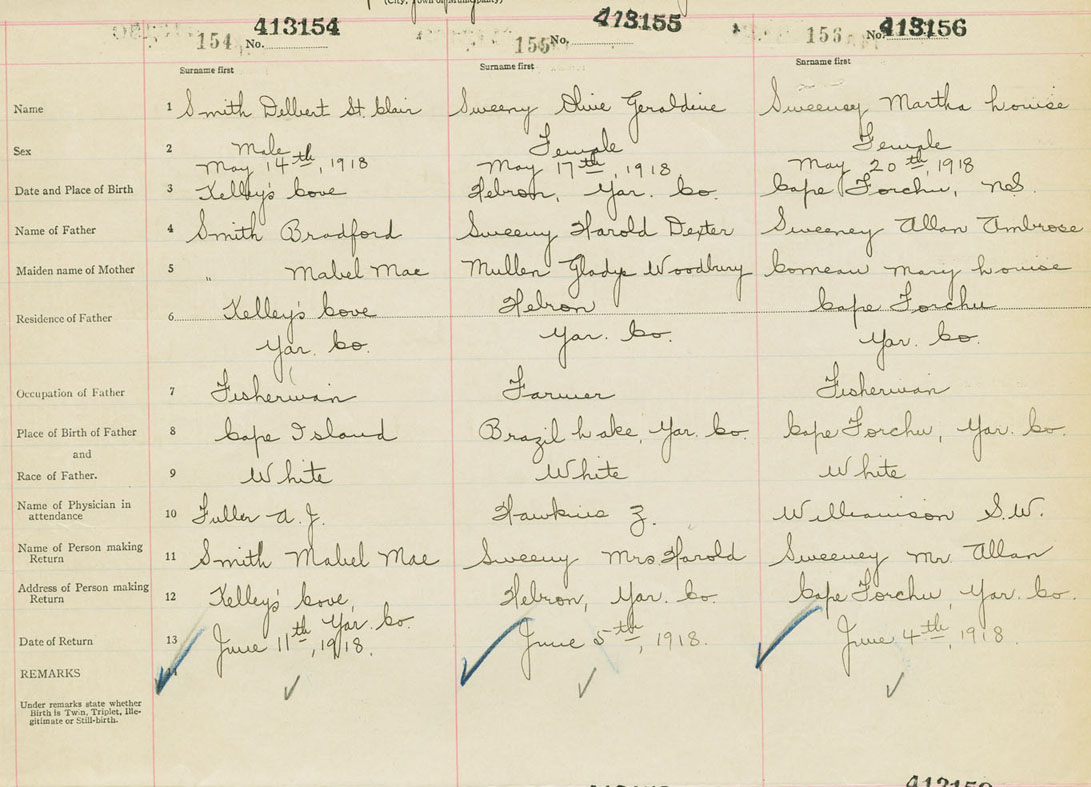 (City, Town or Municipality)
413154 413155 413156
154 No. 155 No. 156 No.
Surname first Surname first Surname first
Name 1 Smith Delbert St. Clair Sweeny Olive Geraldine Sweeney Martha Louise
Sex 2 Male Female Female
May 14th, 1918 May 17th, 1918 May 20th, 1918
Date and Place of Birth 3 Kelley's Cove Hebron, Yar. Co. Cape Forchu, N.S.
Name of Father 4 Smith Bradford Sweeny Harold Dexter Sweeney Allan Ambrose
Maiden name of Mother 5 " Mabel Mae Mullen Gladys Woodbury Comeau Mary Louise
Residence of Father 6 Kelley's Cove Hebron Cape Forchu
Yar. Co. Yar. Co. Yar. Co.
Occupation of Father 7 Fisherman Farmer Fisherman
Place of Birth of Father 8 Cape Island Brazil Lake, Yar. Co. Cape Forchu, Yar. Co.
and
Race of Father. 9 White White White
Name of Physician in attendance 10 Fuller A. J. Hawkins Z. Williamson S.W.
Name of Person making Return 11 Smith Mabel Mae Sweeny Mrs Harold Sweeney Mr. Allan
Address of Person making Return 12 Kelley's Cove, Yar. Co. Hebron, Yar. Co. Cape Forchu, Yar. Co.
Date of Return 13 June 11th, 1918. June 5th, 1918. June 4th, 1918.
REMARKS 14
Under remarks state whether
Birth is Twin, Triplet, Ille-
gitimate or Still-birth.